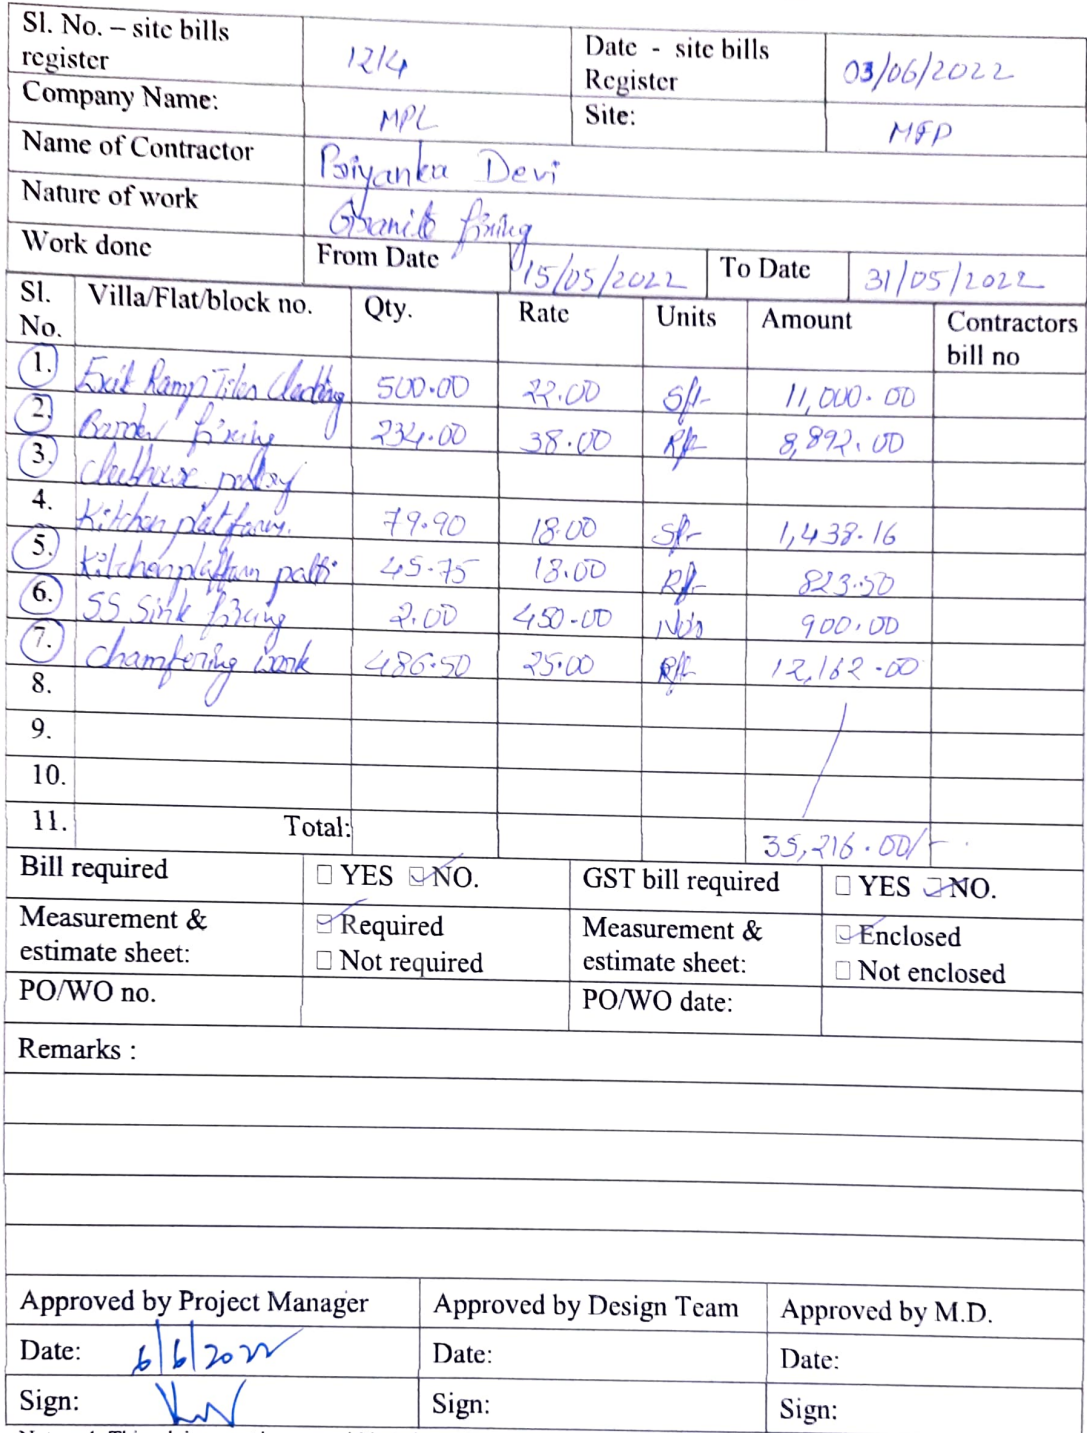 Sl. No. – site bills register 1214 Date - site bills Register 03/06/2022
Company Name: MPL Site: MFP
Name of Contractor Priyanka Devi
Nature of work Granite fixing
Work done From Date 15/05/2022 To Date 31/05/2022
Sl. No. Villa/Flat/block no. Qty. Rate Units Amount Contractors bill no
1. Exit Ramp Tiles Cladding 500.00 22.00 Sft 11,000.00
2. Border fixing 234.00 38.00 Rft 8,892.00
3. Clubhouse pantry
4. Kitchen platform. 79.90 18.00 Sft 1,438.16
5. Kitchen platform patti 45.75 18.00 Rft 823.50
6. SS Sink fixing 2.00 450.00 No's 900.00
7. Chamfering work 486.50 25.00 Rft 12,162.00
8.
9.
10.
11. Total: 35,216.00/-
Bill required YES NO. GST bill required YES NO.
Measurement & estimate sheet: Required Not required Measurement & estimate sheet: Enclosed Not enclosed
PO/WO no. PO/WO date:
Remarks :
Approved by Project Manager Approved by Design Team Approved by M.D.
Date: 6/6/2022 Date: Date:
Sign: Sign: Sign: